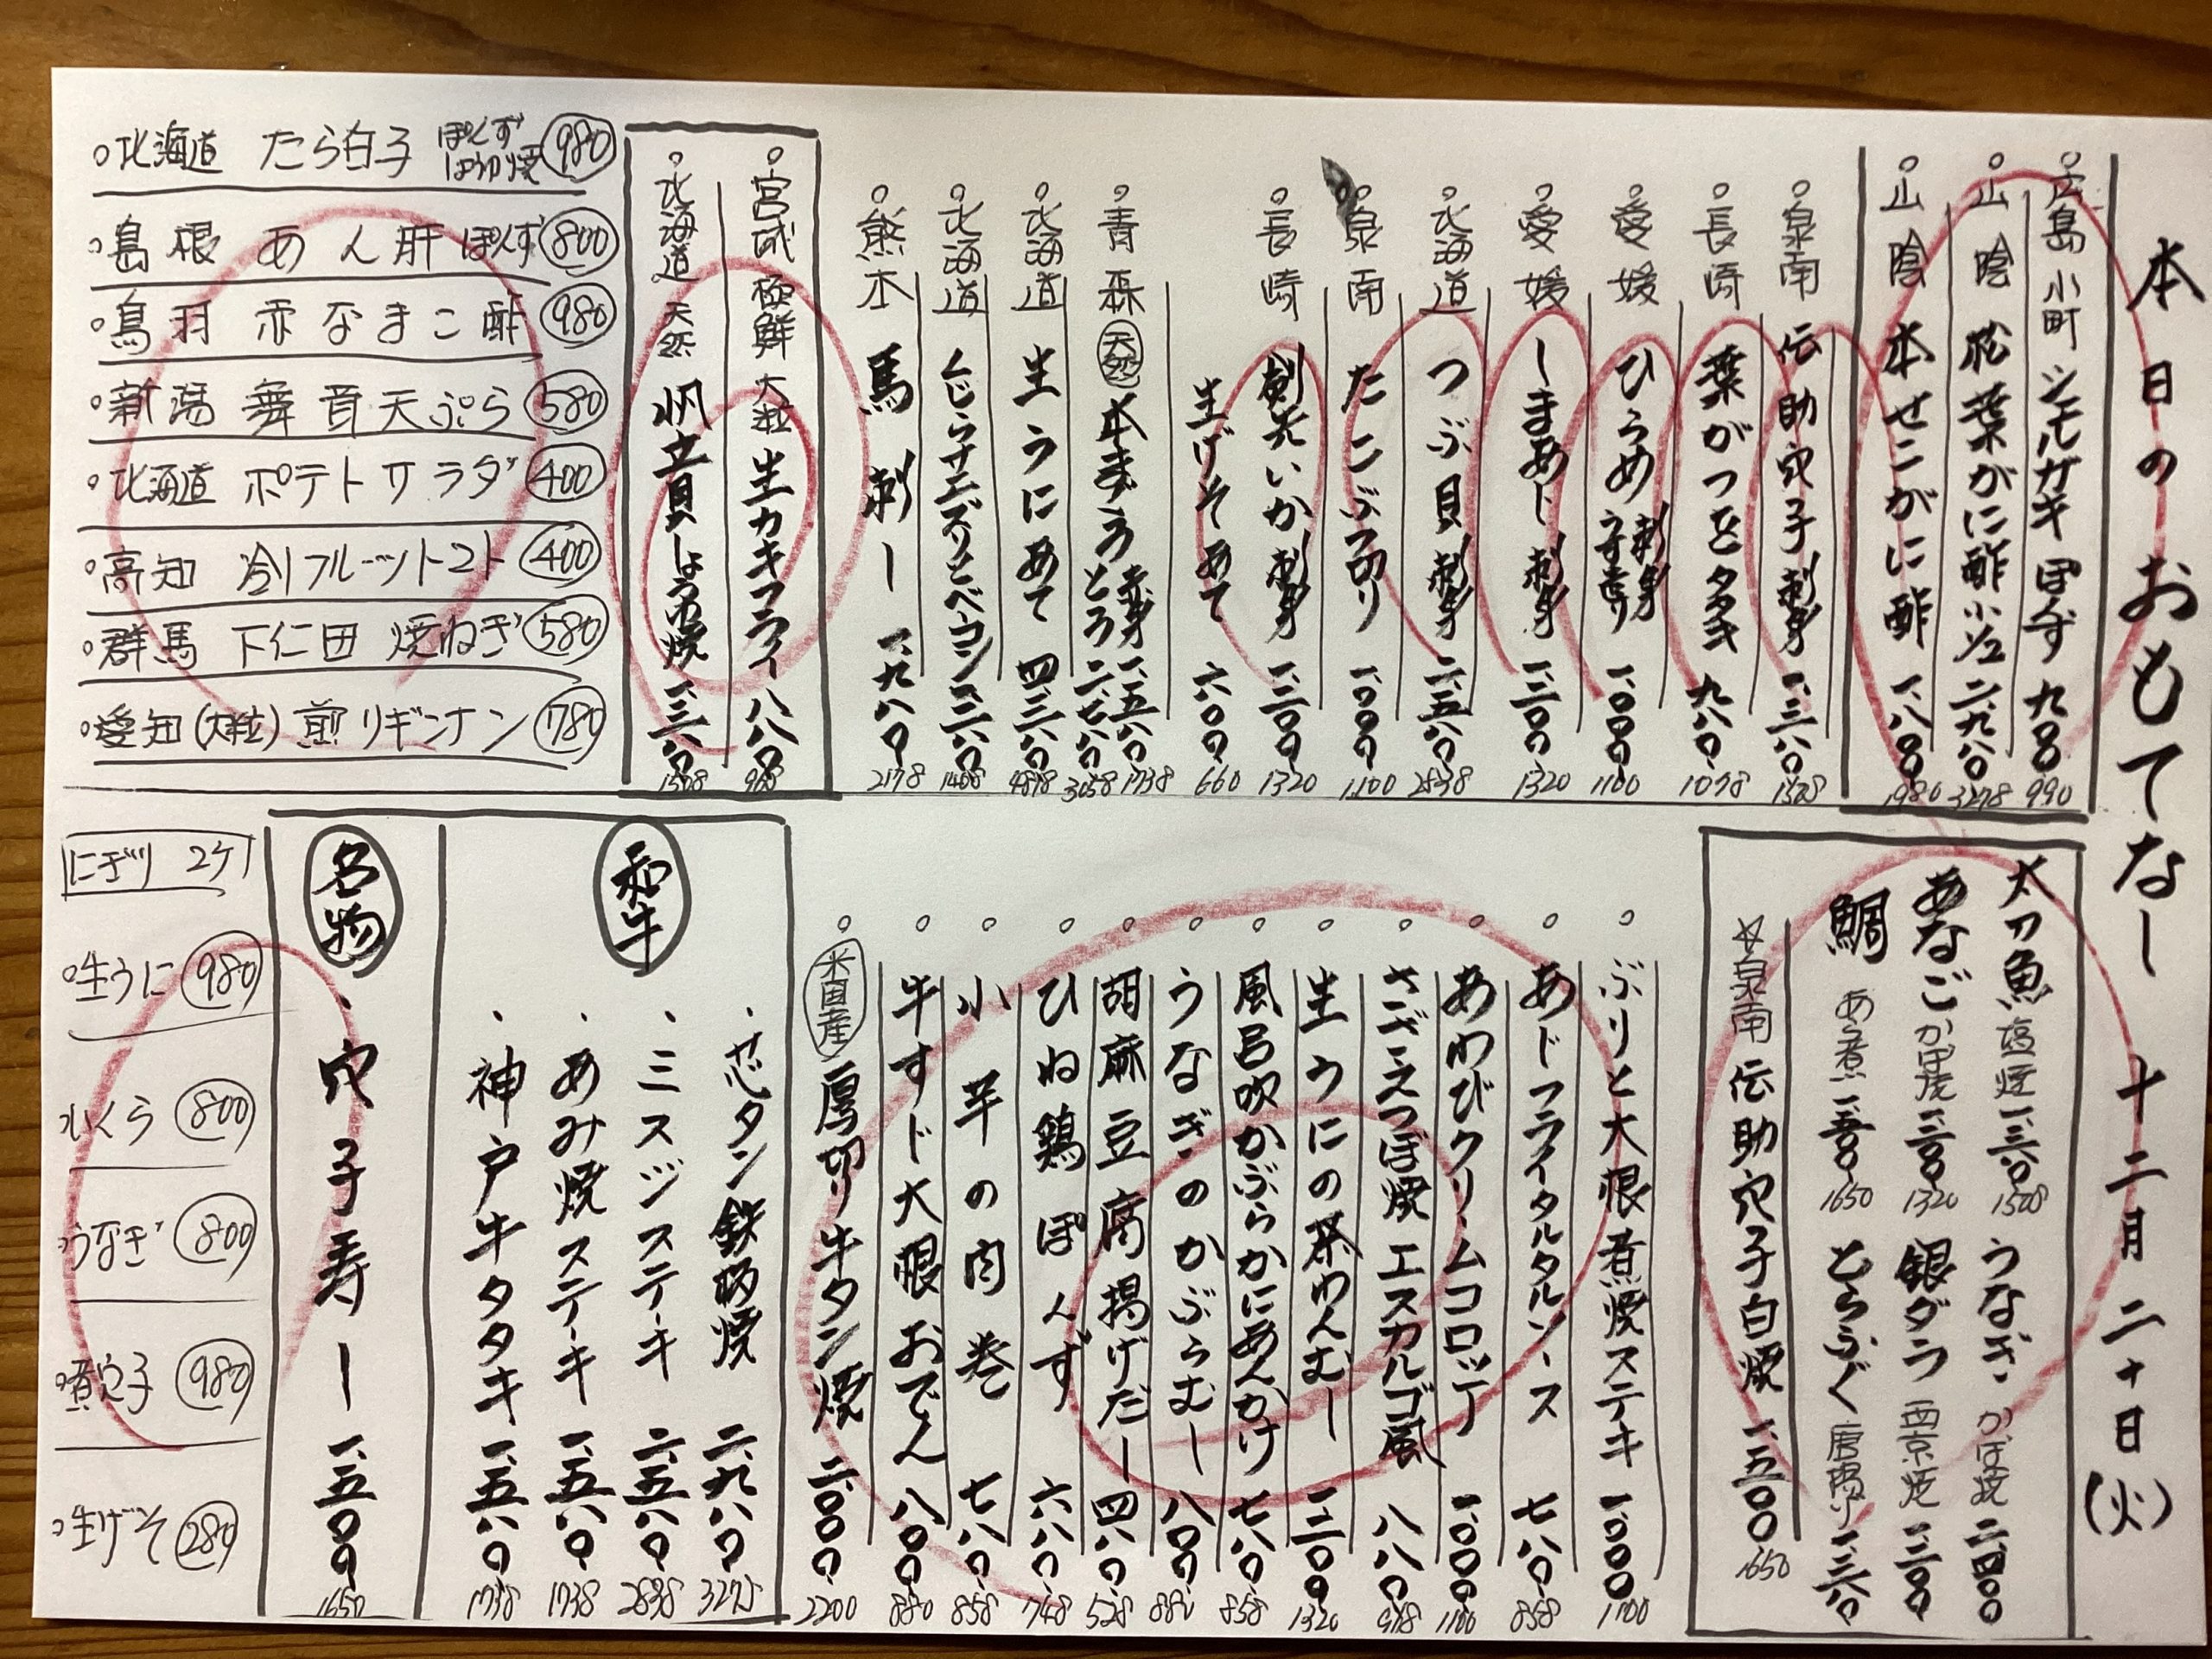 本日のおもてなし 十二月二十日(火)
広島 小町 シモルガキ ぽんず 九〇〇 990
山陰 松葉がに酢 小1/2 二、九八〇 3278
山陰 本せこがに酢 一、八〇〇 1980
泉南 伝助穴子 刺身 一、三八〇 1518
長崎 葉がつをタタキ 九八〇 1078
愛媛 ひらめ 刺身 一、〇〇〇 1100
愛媛 しまあじ 刺身 一、二〇〇 1320
北海道 つぶ貝 刺身 二、五八〇 2838
泉南 たこぶつ切り 一、〇〇〇 1100
長崎 剣先いか 刺身 一、二〇〇 1320
生げそ あて 六〇〇 660
青森 天然 本まぐろ 赤身 一、五八〇 1738
とろ 二、七八〇 3058
北海道 生うに あて 四、三八〇 4818
北海道 くじらサエズリとベーコン 一、二八〇 1408
熊本 馬刺し 一、九八〇 2178
宮城 極鮮 大粒 生カキフライ 八八〇 968
北海道 天然 帆立貝 しょうゆ焼 一、三八〇 1518
北海道 たら白子 ぽんず ほうば焼 980
島根 あん肝ぽんず 800
鳥羽 赤なまこ酢 980
新潟 舞茸天ぷら 580
北海道 ポテトサラダ 400
高知 冷フルーツトマト 400
群馬 下仁田 焼ねぎ 580
愛知(大粒)煎りギンナン 780
太刀魚 塩焼 一、三八〇 1518
あなご かば焼 一、二〇〇 1320
鯛 あら煮 一、五〇〇 1650
うなぎ かば焼 二、四〇〇
銀ダラ 西京焼 一、三〇〇
とらふぐ 唐揚げ 一、三八〇
☆泉南 伝助穴子白焼 一、五〇〇 1650
ぶりと大根煮焼ステキ 一、〇〇〇 1100
あじフライタルタルソース 七八〇 858
あわびクリームコロッケ 一、〇〇〇 1100
さざえつぼ焼 エスカルゴ風 八八〇 968
生うにの茶わんむし 一、二〇〇 1320
風呂吹かぶらかにあんかけ 七八〇 858
うなぎのかぶらむし 八〇〇 880
胡麻豆腐揚げだし 四八〇 528
ひね鶏ぽんず 六八〇 748
小芋の肉巻 七八〇 858
牛すじ大根おでん 八〇〇 880
米国産 厚切り牛タン焼 二、〇〇〇 2200
和牛
・芯タン鉄板焼 二、九八〇 3278
・ミスジステーキ 二、五八〇 2838
・あみ焼ステーキ 一、五八〇 1738
・神戸牛タタキ 一、五八〇 1738
名物
・穴子寿し 一、五〇〇 1650
にぎり 2ケ
生うに 980
いくら 800
うなぎ 800
煮穴子 980
生げそ 280